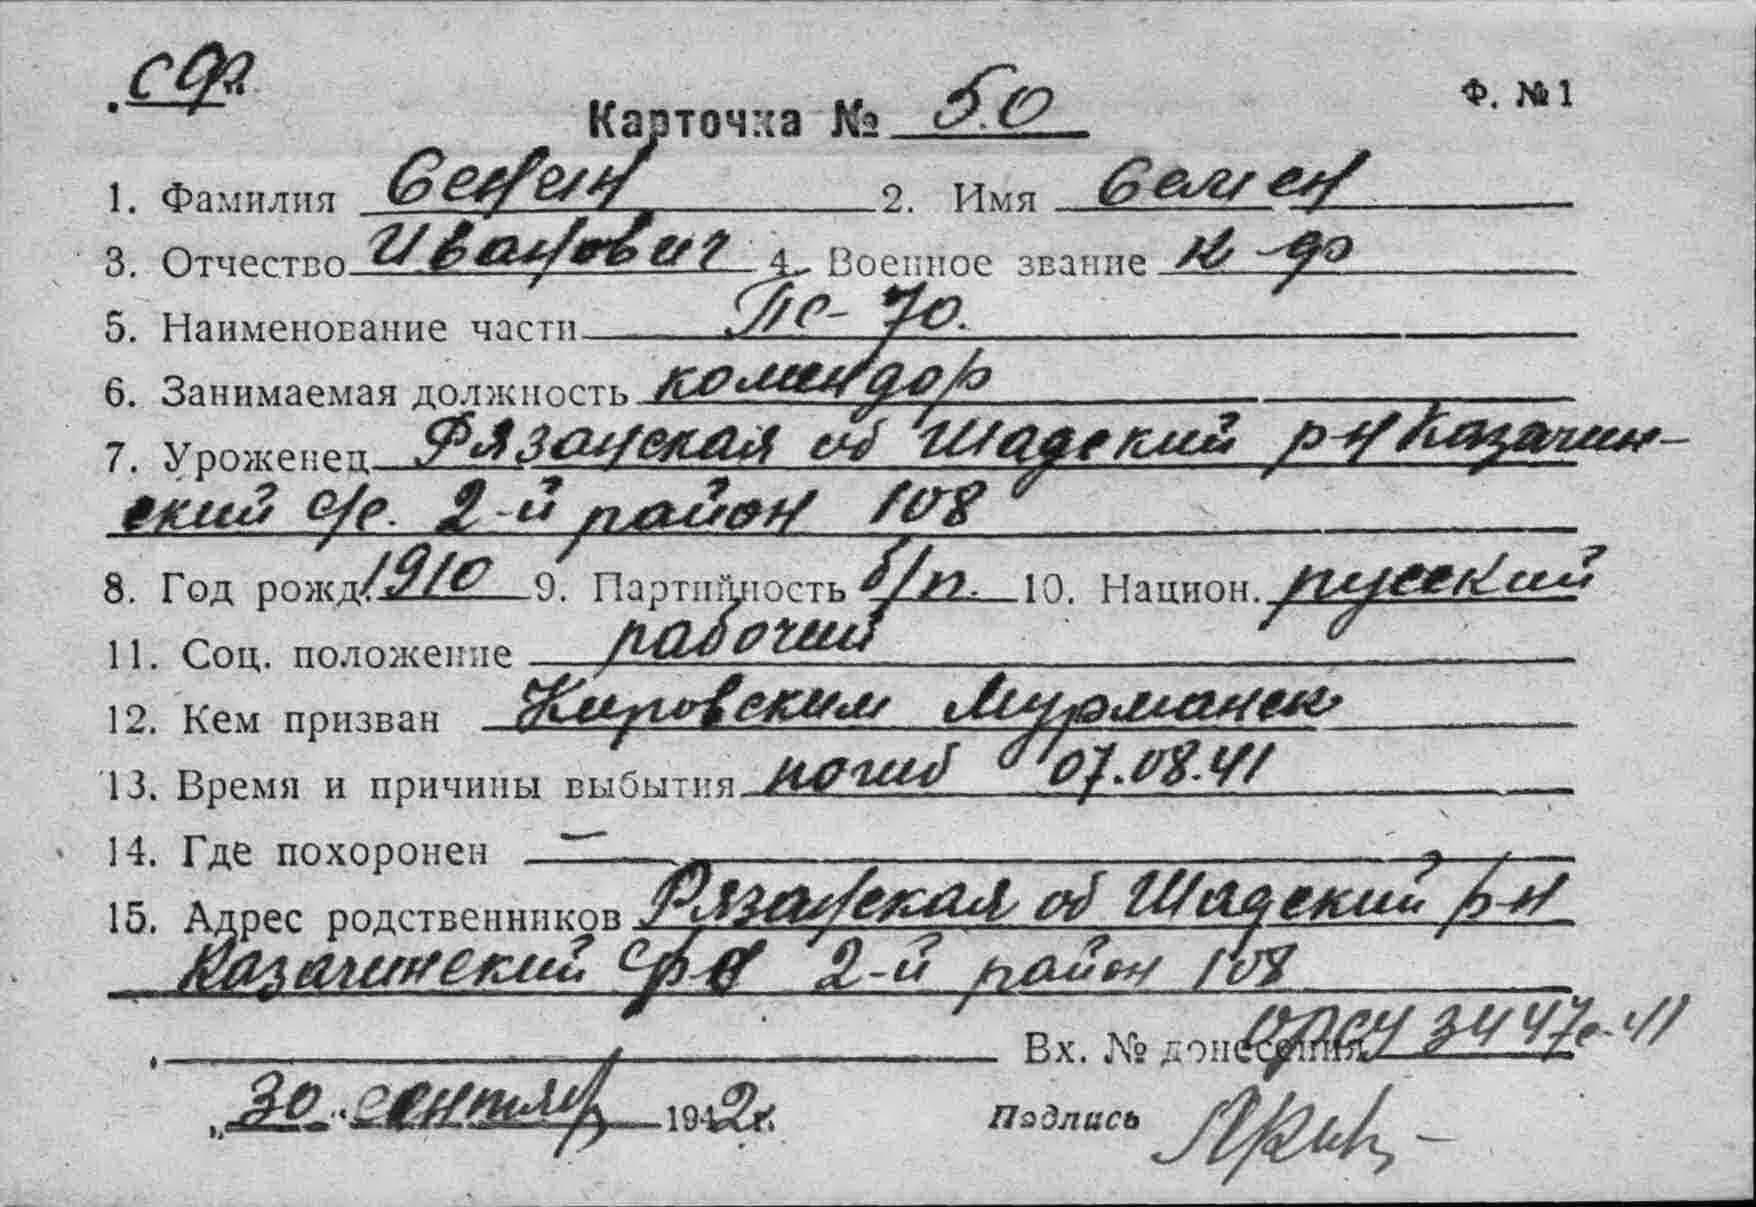 СФ.
Карточка № 50
Ф. № 1
1. Фамилия Сенин 2. Имя Семен
3. Отчество Иванович 4. Военное звание к-ф
5. Наименование части ПС-70.
6. Занимаемая должность комендор
7. Уроженец Рязанская об Шадский р-н Казачин-
ский с/с. 2-й район 108
8. Год рожд. 1910 9. Партийность б/п. 10. Национ. русский
11. Соц. положение рабочий
12. Кем призван Кировским Мурманск
13. Время и причины выбытия погиб 07.08.41
14. Где похоронен —
15. Адрес родственников Рязанская об Шадский р-н
Казачинский 2-й район 108
Вх. № донесения 3447с-41
„30" сентябр 1942г.
Подпись